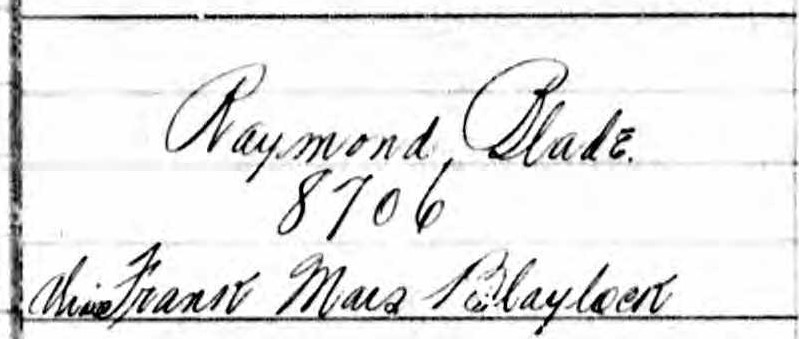 Raymond Blade.
8706
Frank Mars Blaylock